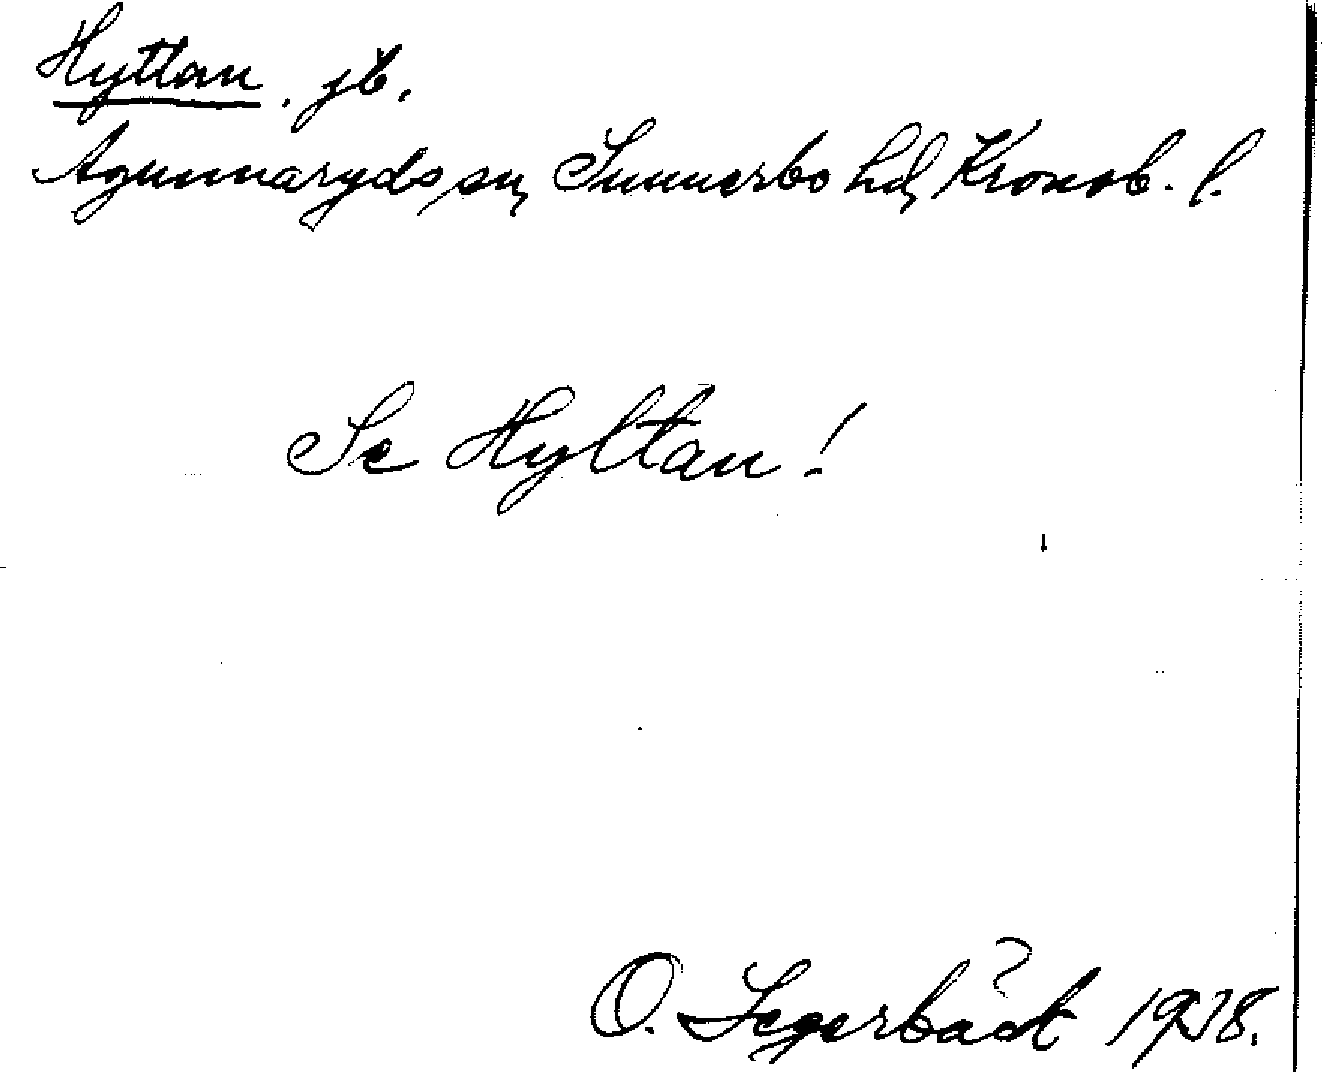 Hyttan. jb.
Agunnaryds sn, Sunnerbo hd, Kronob. l.
Se Hyltan!
O. Segerbäck 1928.